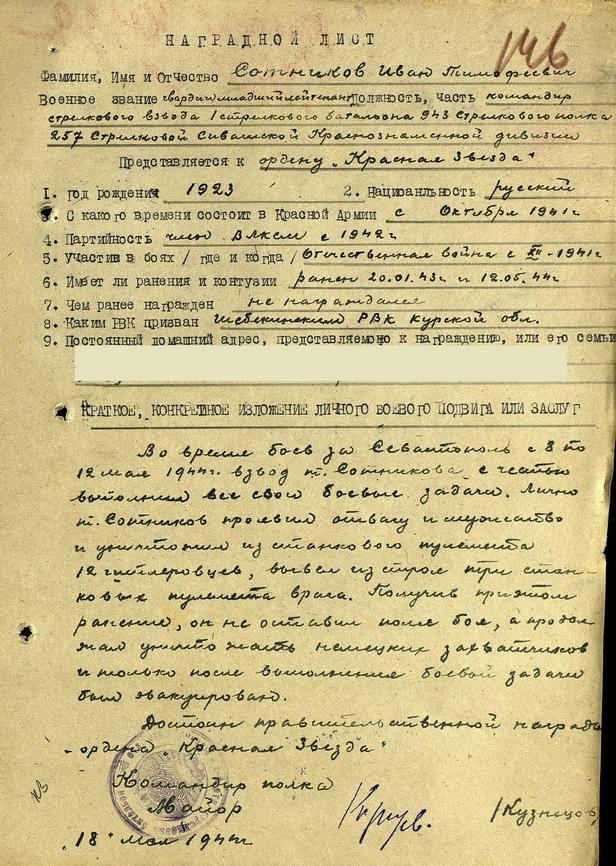 146
НАГРАДНОЙ ЛИСТ
Фамилия, Имя и Отчество Сотников Иван Тимофеевич
Военное звание гвардии младший лейтенант Должность, часть командир
стрелкового взвода 1 стрелкового батальона 943 Стрелкового полка
257 Стрелковой Сивашской Краснознаменной дивизии
Представляется к ордену „Красная Звезда"
1. год рождения 1923 2. Нацисанльность русский
3. С какого времени состоит в Красной Армии с Октября 1941г
4. Партийность член ВЛКСМ с 1942г
5. Участие в боях / где и когда / Отечественная война с XII-1941г
6. Имеет ли ранения и контузии ранен 20.01.43г и 12.05.44г
7. Чем ранее награжден не награждался
8. Каким РВК призван Шебекинским РВК Курской обл.
9. Постоянный домашний адрес, представляемого к награждению, или его семьи
КРАТКОЕ, КОНКРЕТНОЕ ИЗЛОЖЕНИЕ ЛИЧНОГО БОЕВОГО ПОДВИГА ИЛИ ЗАСЛУГ
Во время боев за Севастополь с 8 по
12 мая 1944г. взвод т. Сотникова с честью
выполнил все свои боевые задачи. Лично
т. Сотников проявил отвагу и мужество
и уничтожил из станкового пулемета
12 гитлеровцев, вывел из строя три стан-
ковых пулемета врага. Получив при этом
ранение, он не оставил поле боя, а продол
жал уничтожать немецких захватчиков
и только после выполнения боевой задачи
был эвакуирован.
Достоин правительственной награды
- ордена „Красная Звезда"
Командир полка
Майор /Кузнецов
„18" мая 1944г